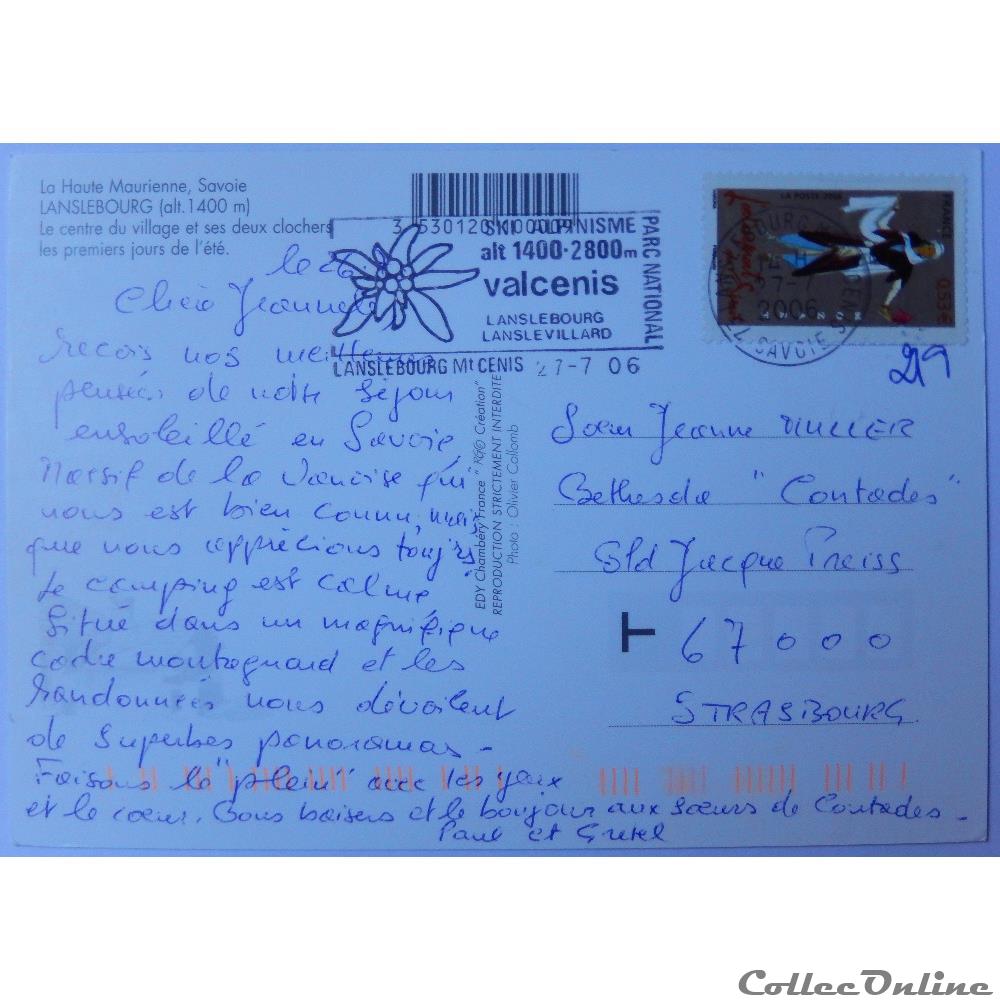 La Haute Maurienne, Savoie
LANSLEBOURG (alt.1400 m)
Le centre du village et ses deux clochers
les premiers jours de l'été.
3 530120 100009
SKI ALPINISME
alt 1400-2800m
valcenis
LANSLEBOURG
LANSLEVILLARD
PARC NATIONAL
LANSLEBOURG Mt CENIS 27-7 06
LA POSTE 2006
FRANCE
0,53€
27-7
2006
SAVOIE
219
le 26
Chère Jeanne
Reçois nos meilleures
pensées de notre séjour
ensoleillé en Savoie,
Massif de la Vanoise qui
nous est bien connu, mais
que nous apprécions toujrs
Le camping est calme
Situé dans un magnifique
cadre montagnard et les
randonnées nous dévoilent
de superbes panoramas -
Faisons le "plein" avec les yeux
et le cœur. Bons baisers et le bonjour aux sœurs de Contades -
Paul et Gretel
EDY Chambéry France " R©© Création"
REPRODUCTION STRICTEMENT INTERDITE
Photo : Olivier Collomb
Sœur Jeanne MULLER
Bethesda "Contades"
Bld Jacque Preiss
T 67000
STRASBOURG
CollecOnline